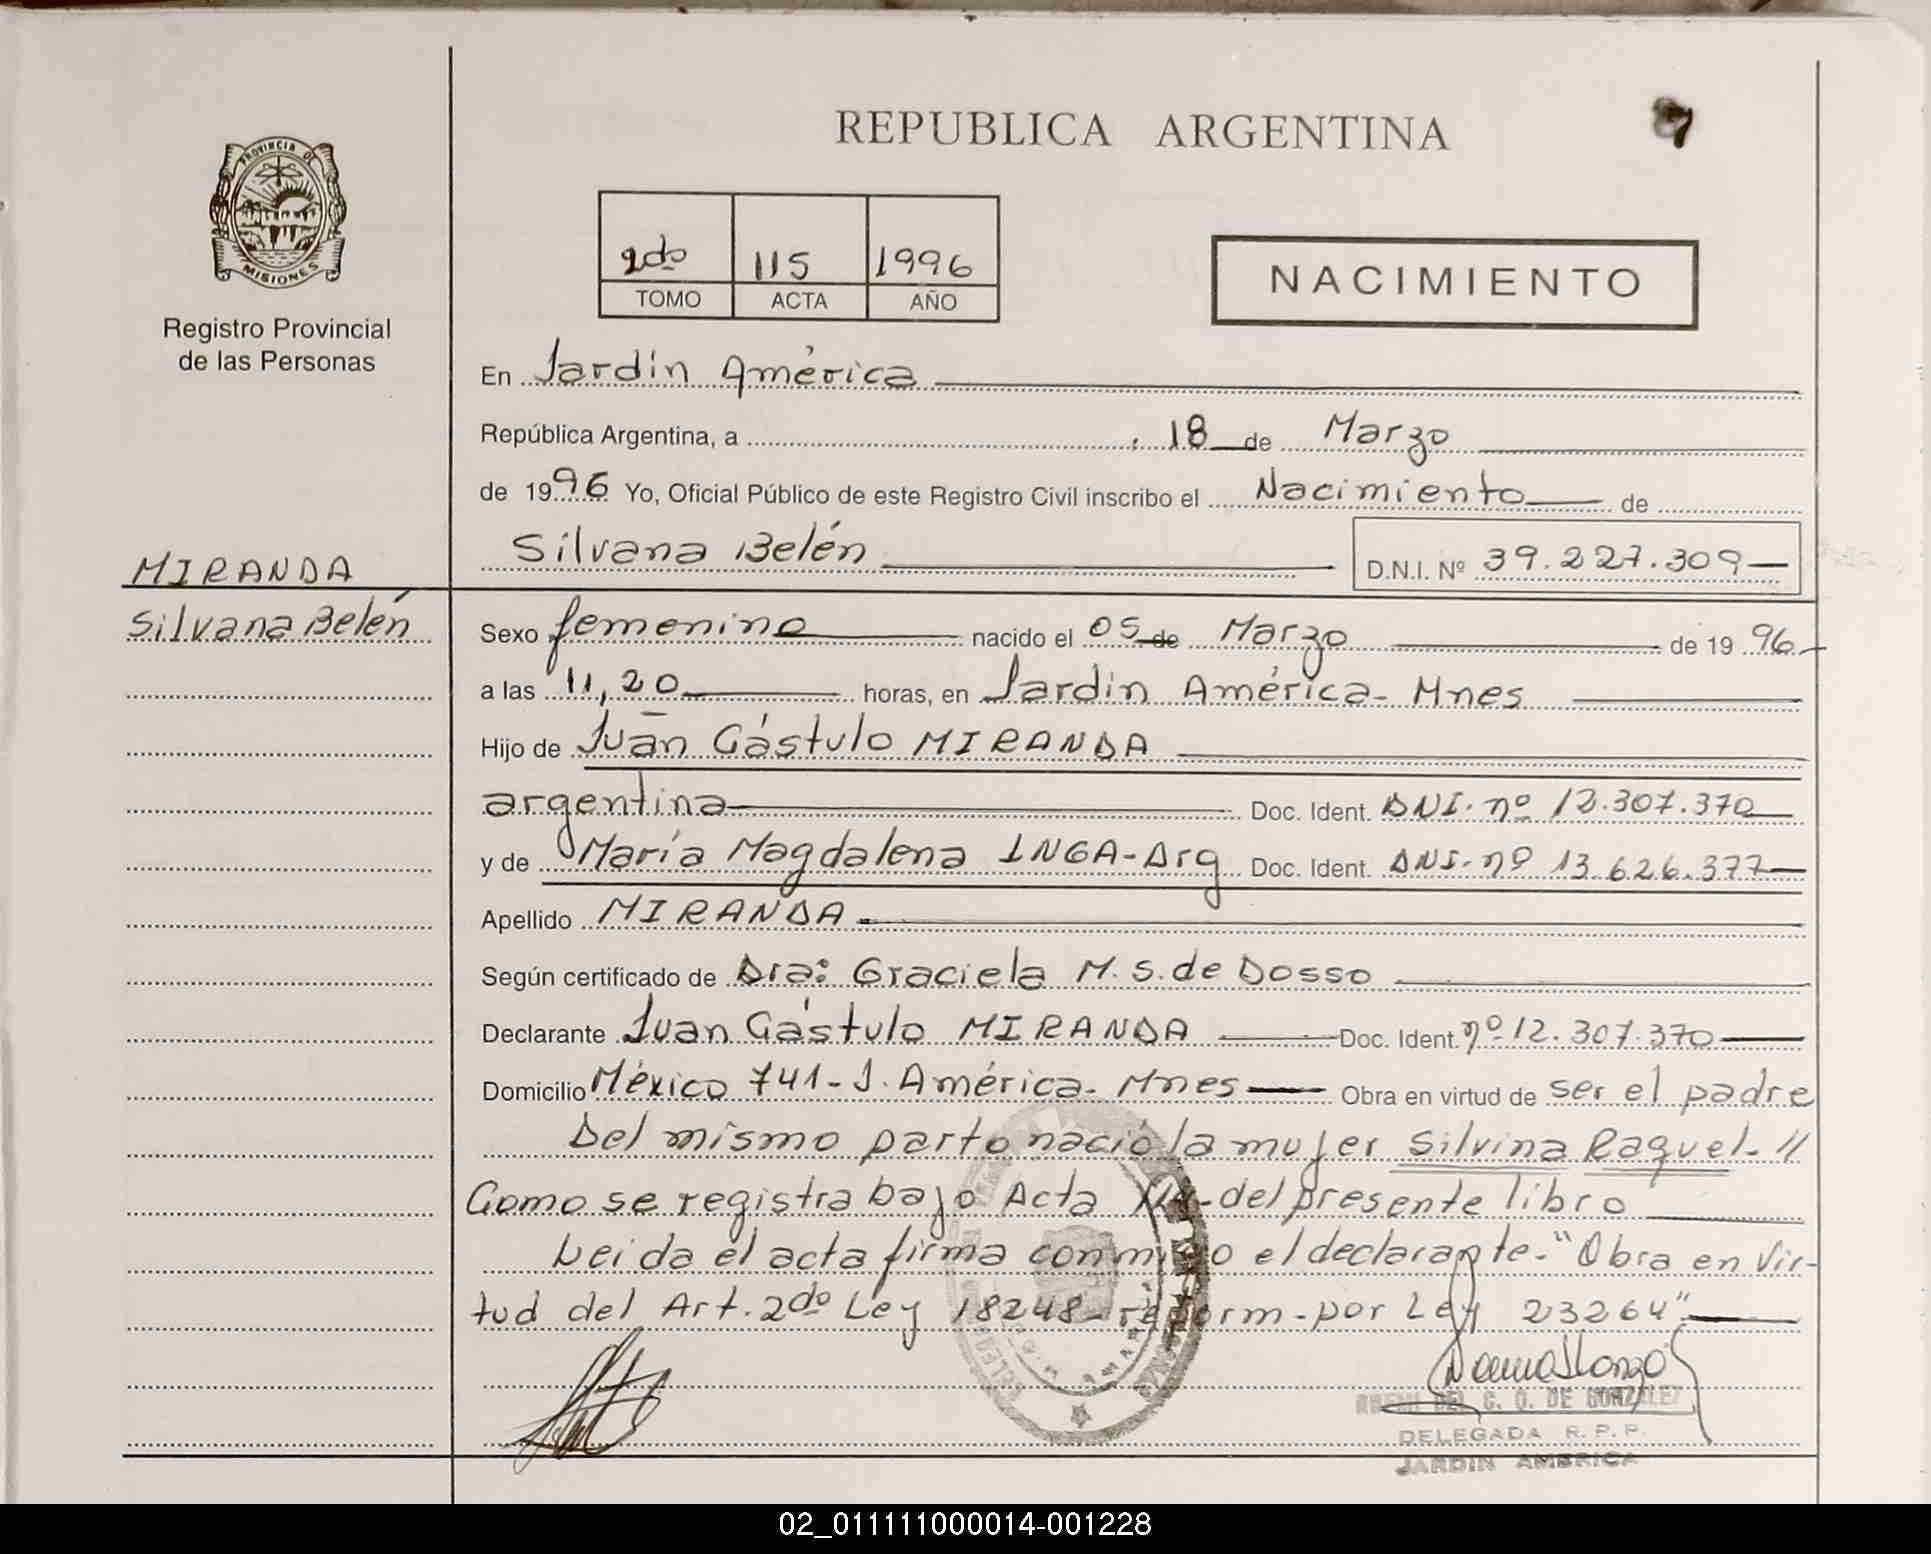 REPUBLICA ARGENTINA
PROVINCIA DE
MISIONES
Registro Provincial
de las Personas
2do 115 1996
TOMO ACTA AÑO
NACIMIENTO
En Jardín América
República Argentina, a , 18 de Marzo
de 1996 Yo, Oficial Público de este Registro Civil inscribo el Nacimiento de
Silvana Belén D.N.I. Nº 39.227.309
MIRANDA
Silvana Belén
Sexo femenino nacido el 05 de Marzo de 1996
a las 11,20 horas, en Jardín América - Mnes
Hijo de Juan Cástulo MIRANDA
argentina Doc. Ident. DNI. nº 12.307.370
y de María Magdalena INGA - Arg Doc. Ident. DNI. nº 13.626.377
Apellido MIRANDA
Según certificado de Dra: Graciela M. S. de Dosso
Declarante Juan Cástulo MIRANDA Doc. Ident. nº 12.307.370
Domicilio México 741 - J. América - Mnes Obra en virtud de ser el padre
Del mismo parto nació la mujer Silvina Raquel - //
Como se registra bajo Acta del presente libro
Leida el acta firma conmigo el declarante - "Obra en Vir-
tud del Art. 2do Ley 18248 - reform - por Ley 23264"
DEL C. O. DE GONZALEZ
DELEGADA R. P. P.
JARDIN AMERICA
02_011111000014-001228